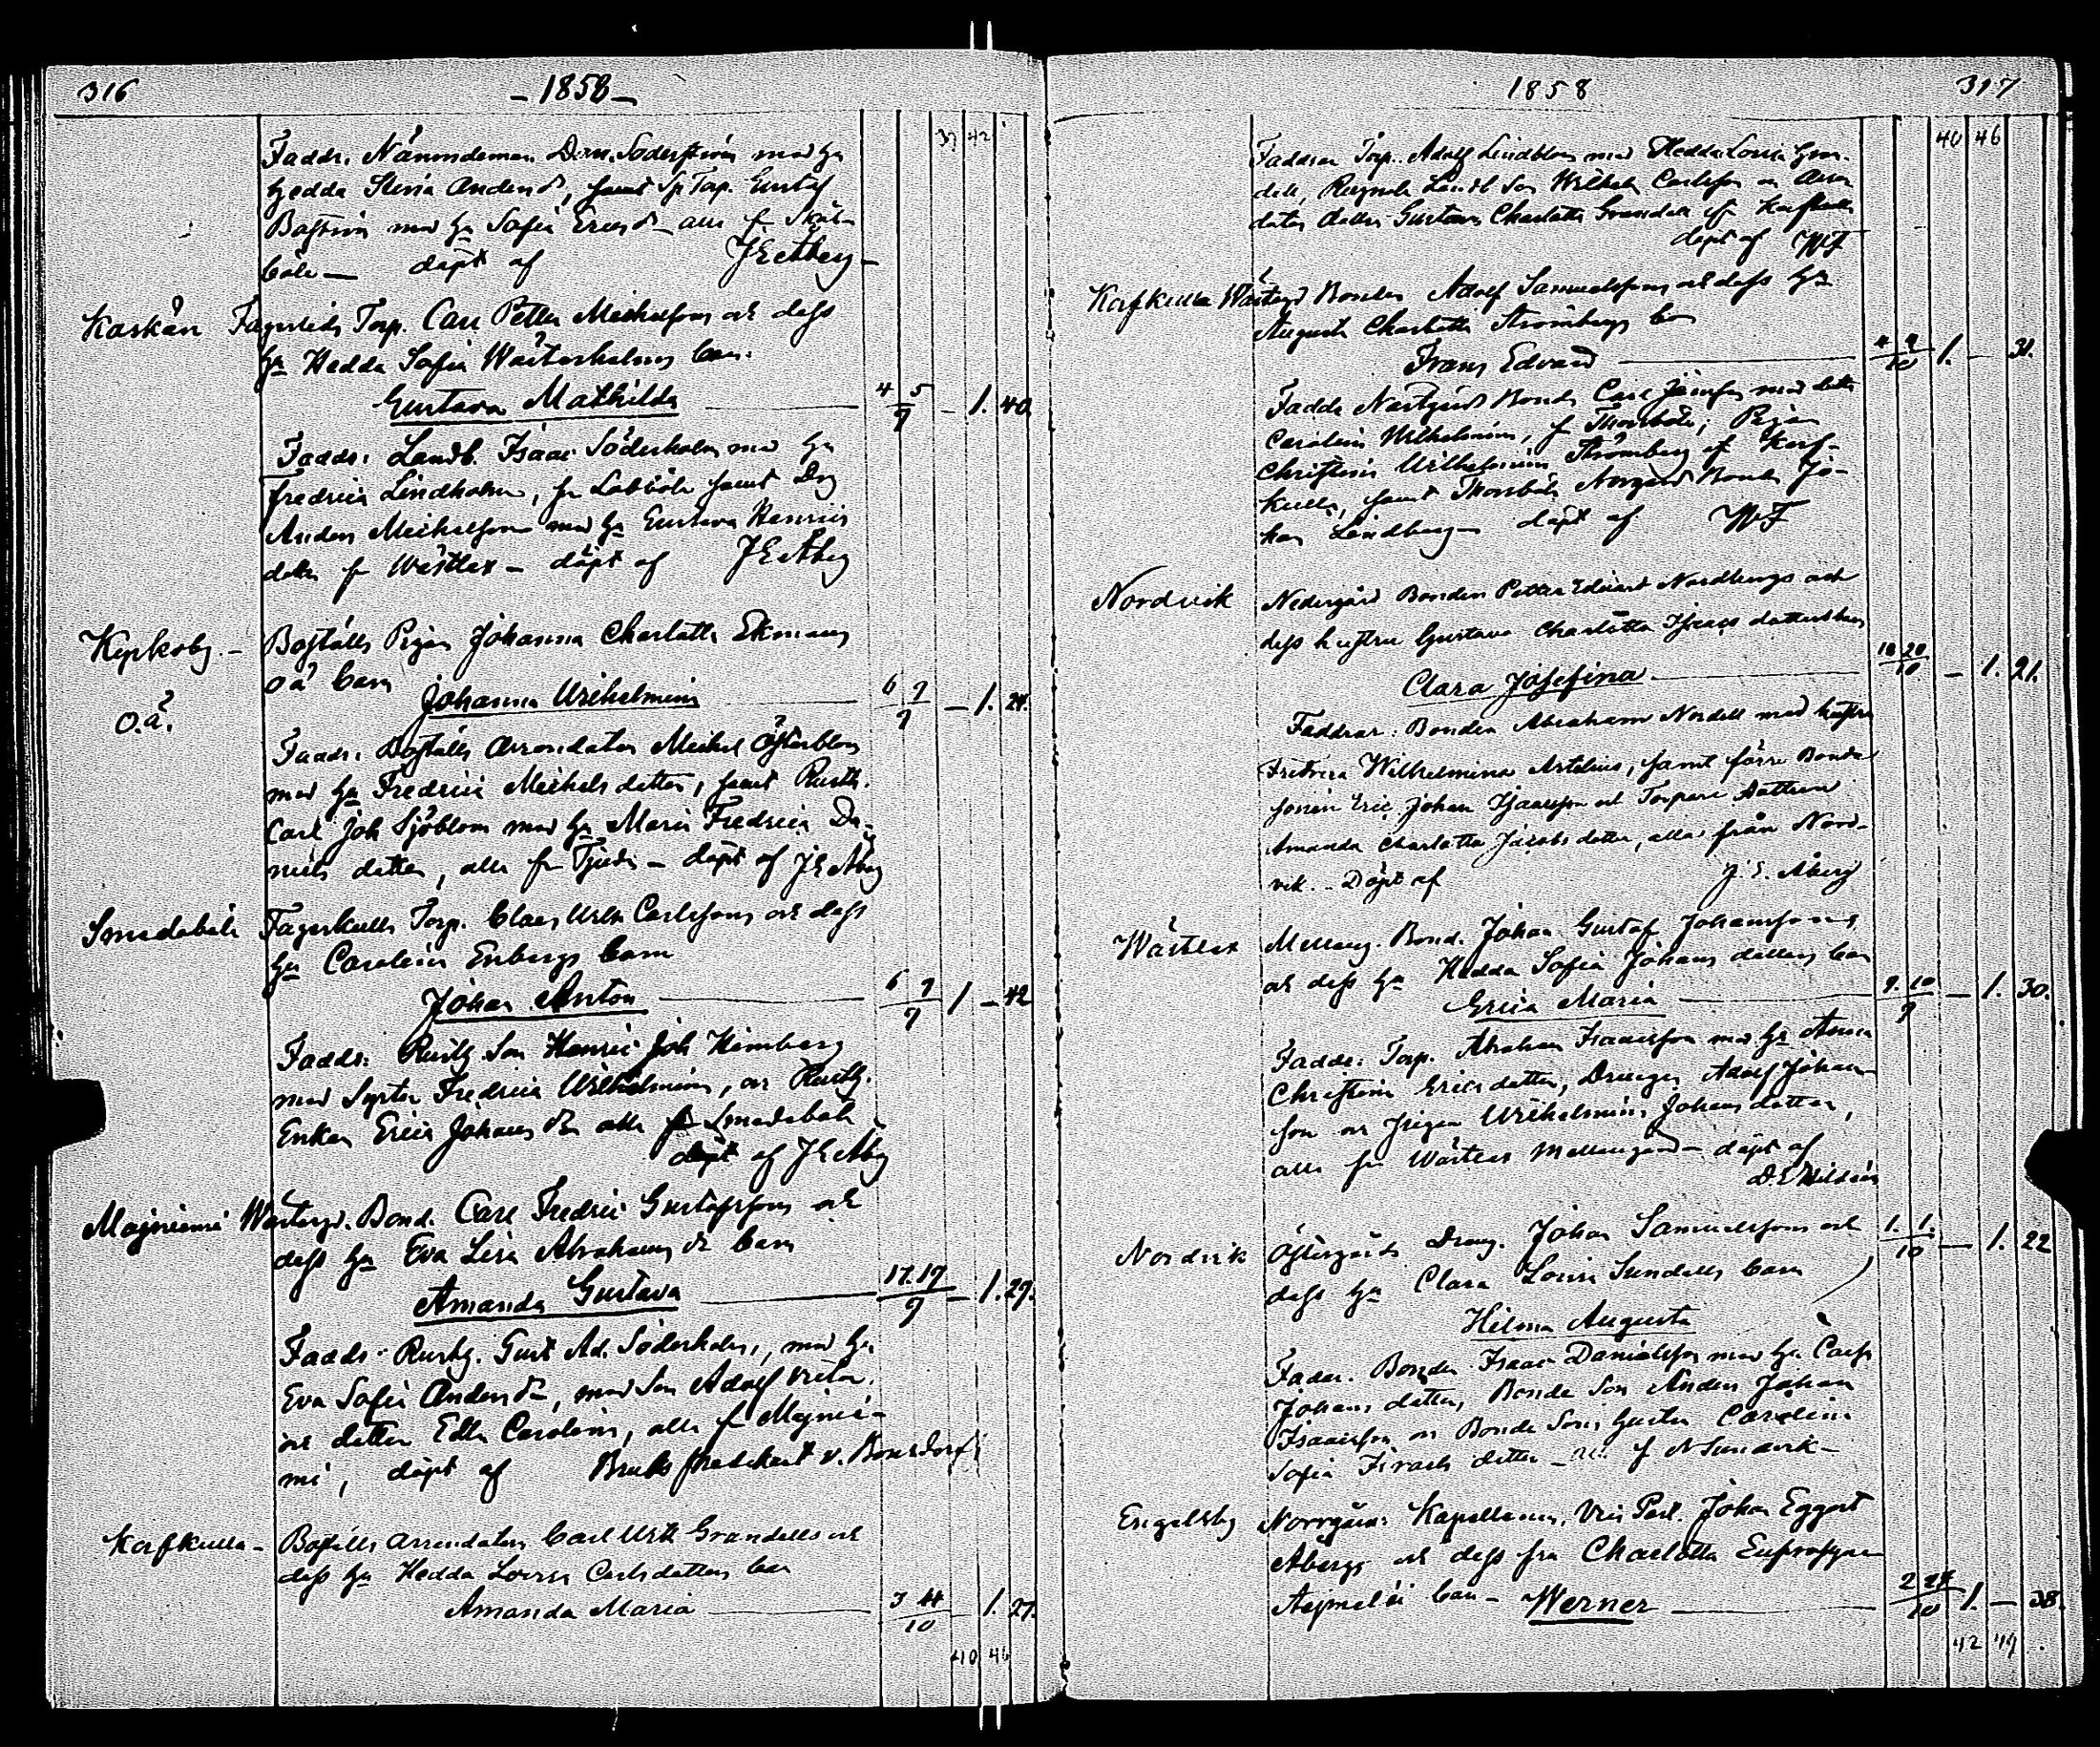 316 - 1858 -
39 42
Fadds. Nämndeman Dan. Söderström med hu
Hedda Stina Anders dr, samt Sp Torp. Gustaf
Boström med hu Sofia Ericsdr alla fr Skål-
böle — döpt af JEÅberg -
Kaskän Fagerlids Torp. Carl Petter Michelssons och dess
hu Hedda Sofia Wästerholms barn.
Gustava Mathilda 4 5/9 - 1. 40
Fadds. Landb. Isaac Söderholm med hu
Fredrica Lindholm, fr Labböle samt Drg
Anders Michelsson med hu Gustava Henrics
dotter fr Wästlax - döpt af JEÅberg
Kyrkoby - Boställs Pigan Johanna Charlotta Ekmans
oä barn
Johanna Wilhelmina 6 7/9 - 1. 24.
o.ä.
Fadds. Boställs Arrendator Michel Österblom
med hu Fredrica Michels dotter, samt Rusth.
Carl Joh Sjöblom med hu Maria Fredrica Da-
niels dotter, alla fr Tjuda - döpt af JEÅberg
Smedaböle Fagerkulla Torp. Claes Wilh Carlssons och dess
hu Carolina Enbergs barn
Johan Anton 6 7/9 1 - 42
Fadds. Rusth. Son Henric Joh Himberg
med Syster Fredrica Wilhelmina, och Rusth.
Enkan Erica Johans dr alla fr Smedaböle
döpt af JEÅbg
Majniemi Wästergd. Bond. Carl Fredric Gustafssons och
dess hu Eva Lisa Abrahams dr barn
Amanda Gustava 17. 19/9 - 1. 29.
Fadds. Rusth. Gust Ad. Söderholm, med hu
Eva Sofia Anders dr, med Son Adolf Victor
och dotter Edla Carolina, alla fr Majnie-
mi, döpt af Bruks predikant v. Bonsdorff
Kafkulla - Boställs Arrendatorn Carl Wilh Grandells och
dess hu Hedda Lovisa Carlsdotters barn
Amanda Maria 3 4/10 - 1. 27.
40 46
1858 317
40 46
Faddrar Torp. Adolf Lindblom med Hedda Lovisa Gran-
dell, Landb Son Wilhelm Carlsson och Arren
dators dotter Gustava Charlotta Grandell fr Kafkulla
döpt af WF
Kafkulla Wästergd Bonden Adolf Samuelssons och dess hu
Augusta Charlotta Strömbergs barn
Frans Edvard 4 9/10 1. - 31.
Fadda Norrgårds Bonden Carl med dotter
Carolina Wilhelmina, fr Thorsböle, Pigan
Christina Wilhelmina Strömberg af Kaf-
kulla, samt Thorsböle Norrgård Bonde Jo-
han Lindberg - döpt af WF
Nordvik Nedergård Bonden Petter Edvart Nordbergs och
dess hustru Gustava Charlotta Isaacs dotters barn
Clara Josefina 10 20/10 - 1. 21.
Faddrar: Bonden Abraham Nordell med hustru
Fredrica Wilhelmina Artelius, samt förre Bonde
sonen Eric Johan Isaacsson och Torpare dottren
Amanda Charlotta Jacobs dotter, alla från Nord-
vik. - Döpt af J. E. Åberg
Wästlax Melleng. Bond. Johan Gustaf Johanssons,
och dess hu Hedda Sofia Johans dotters barn
Erica Maria 9. 10/9 - 1. 30.
Fadds. Torp. Abraham Isaacsson med hu Anna
Christina Ericsdotter, Drengen Adolf Johans-
son och Pigan Wilhelmina Johans dotter,
alla fr Wästlax Mellangård - döpt af
D E Hildén
Nordvik Östergårds Dreng. Johan Samuelssons och 1. 1./10 - 1. 22
dess hu Clara Lovisa Sundells barn
Hilma Augusta
Fadds. Bonden Isaac Danielsson med hu Caisa
Johans dotter, Bonde Son Anders Johan
Isaacsson och Bonde Sons hustru Carolina
Sofia Israels dotter - alla f N Sundvik -
Engelsby Norrgård Kapellanen, Vice Past. Johan Eggert
Åbergs och dess fru Charlotta Eufrosyne
Aejmelæi barn - Werner 2 27/10 1. - 38.
42 49